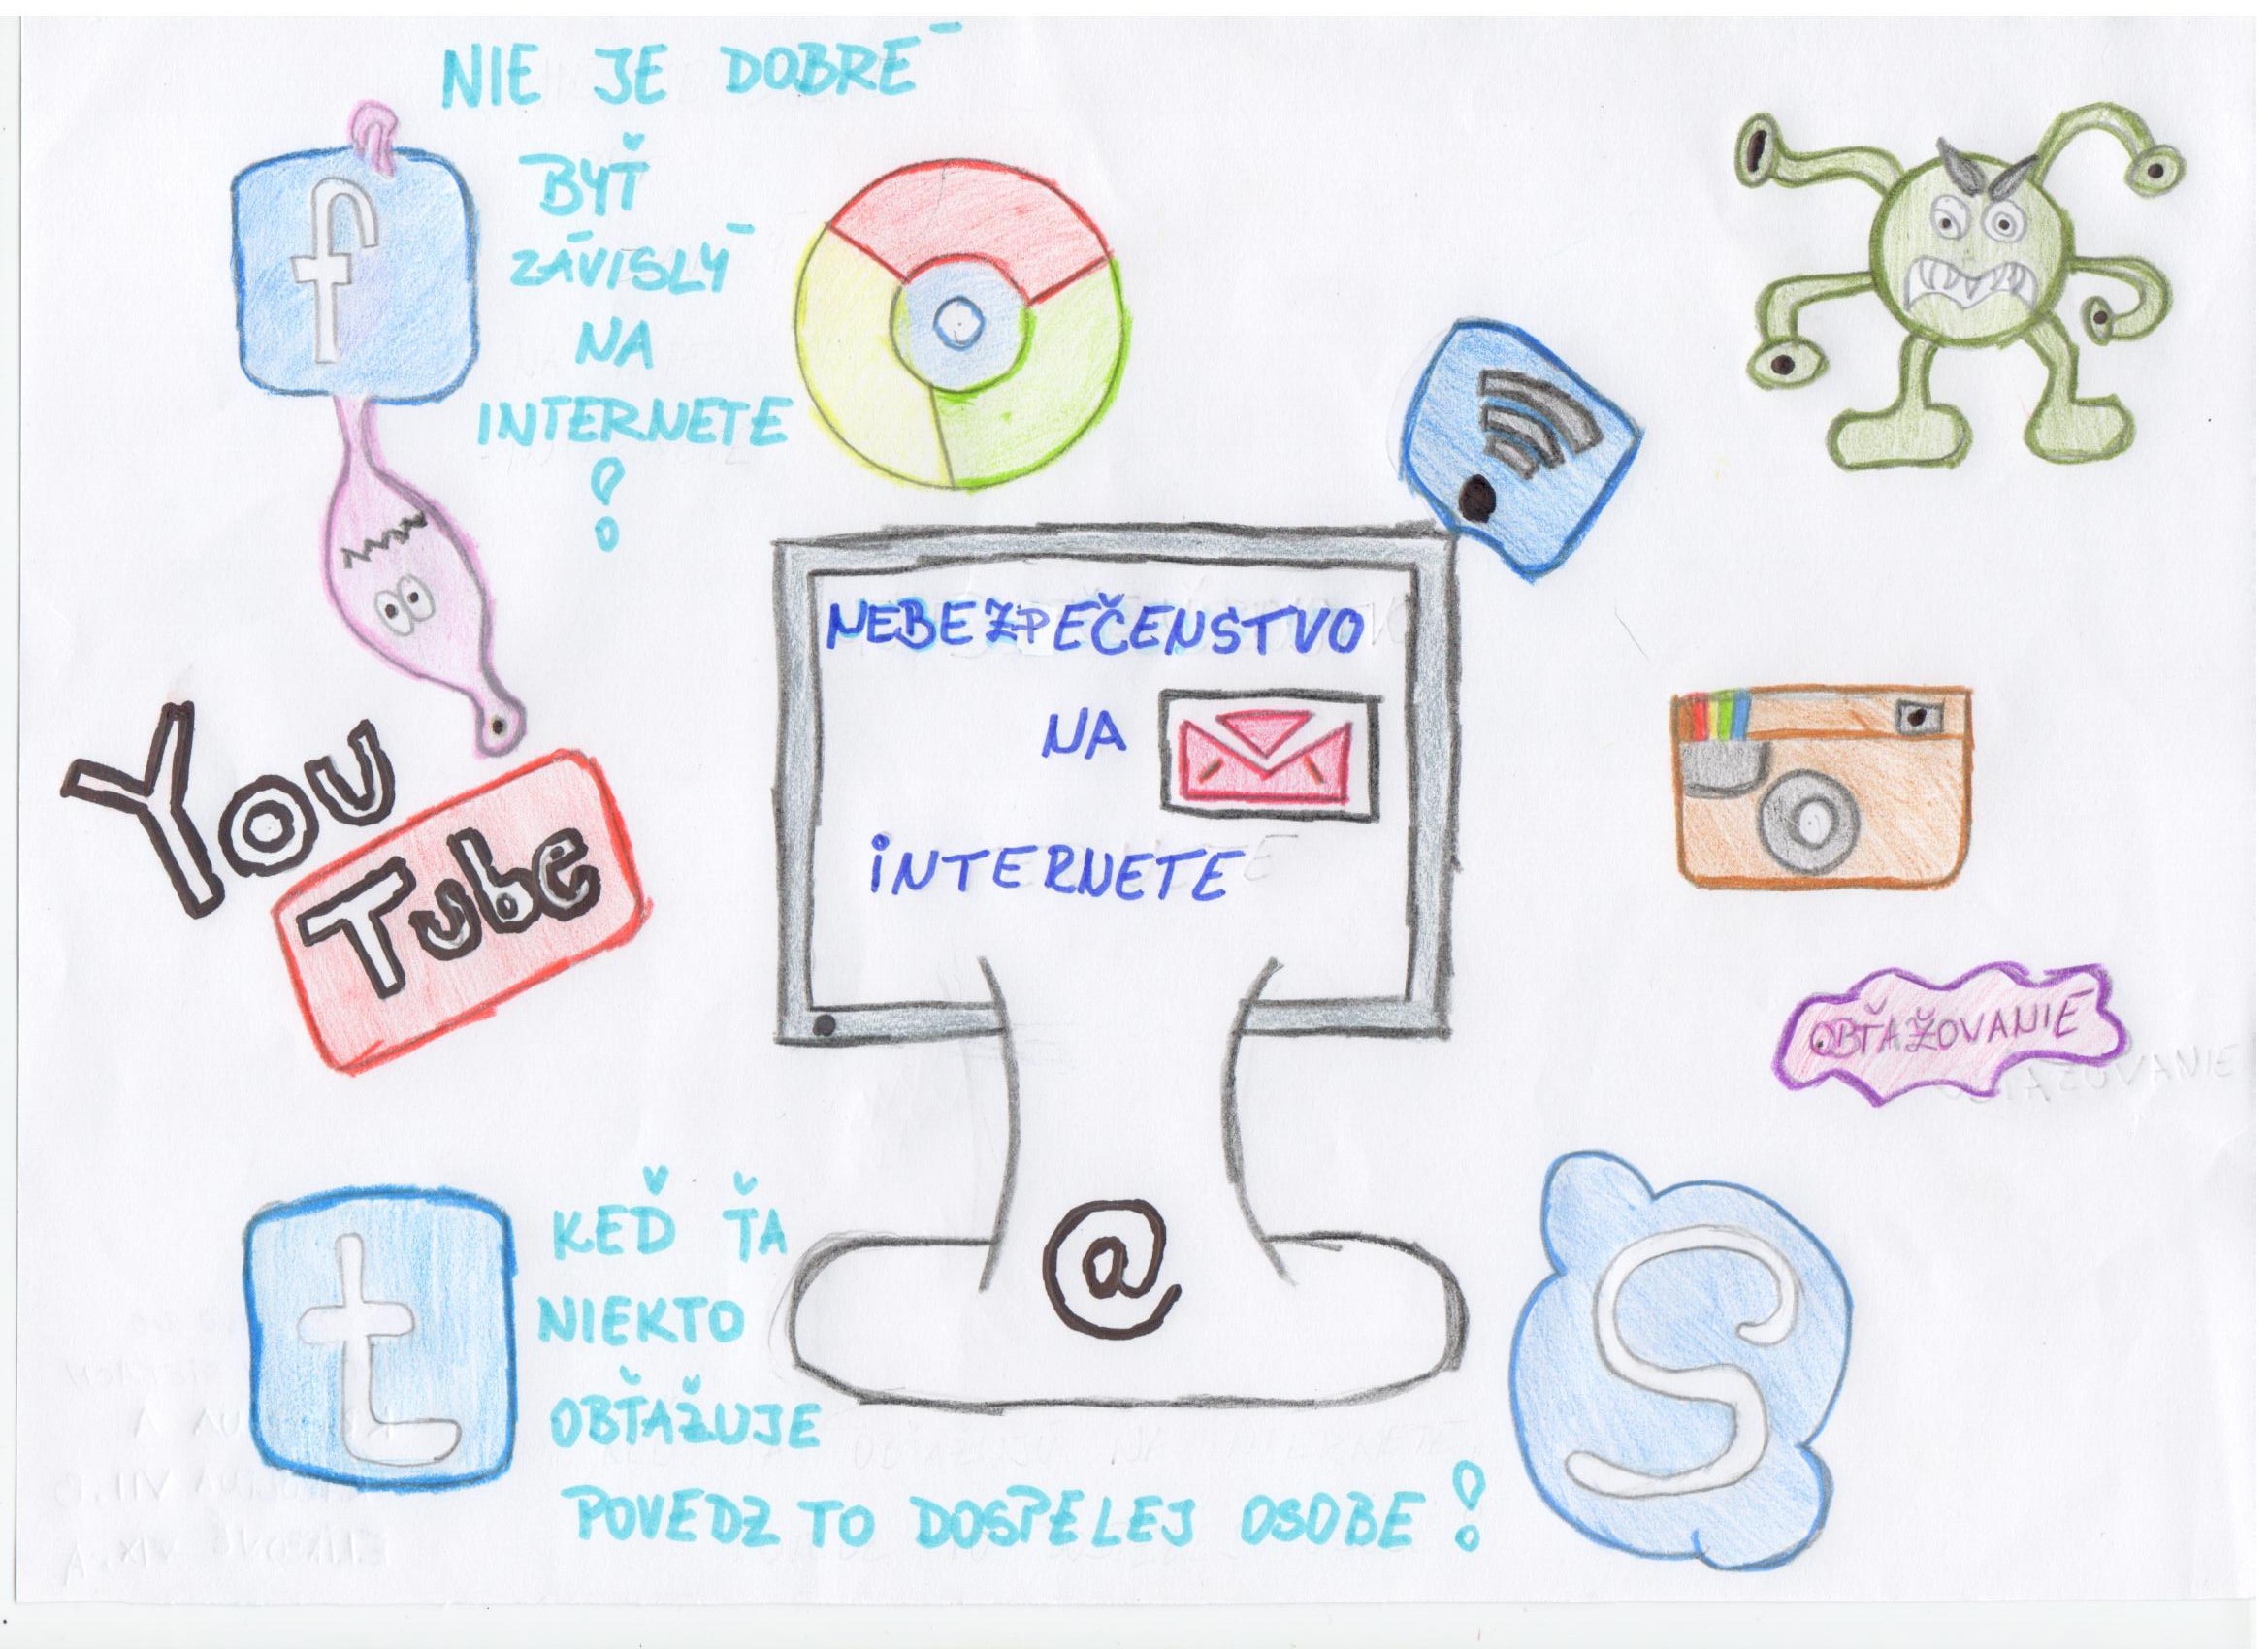 NIE JE DOBRÉ
BYŤ
ZÁVISLÝ
NA
INTERNETE
!
f
NEBEZPEČENSTVO
NA
INTERNETE
You
Tube
OBŤAŽOVANIE
@
t
KEĎ ŤA
NIEKTO
OBŤAŽUJE
POVEDZ TO DOSPELEJ OSOBE !
S